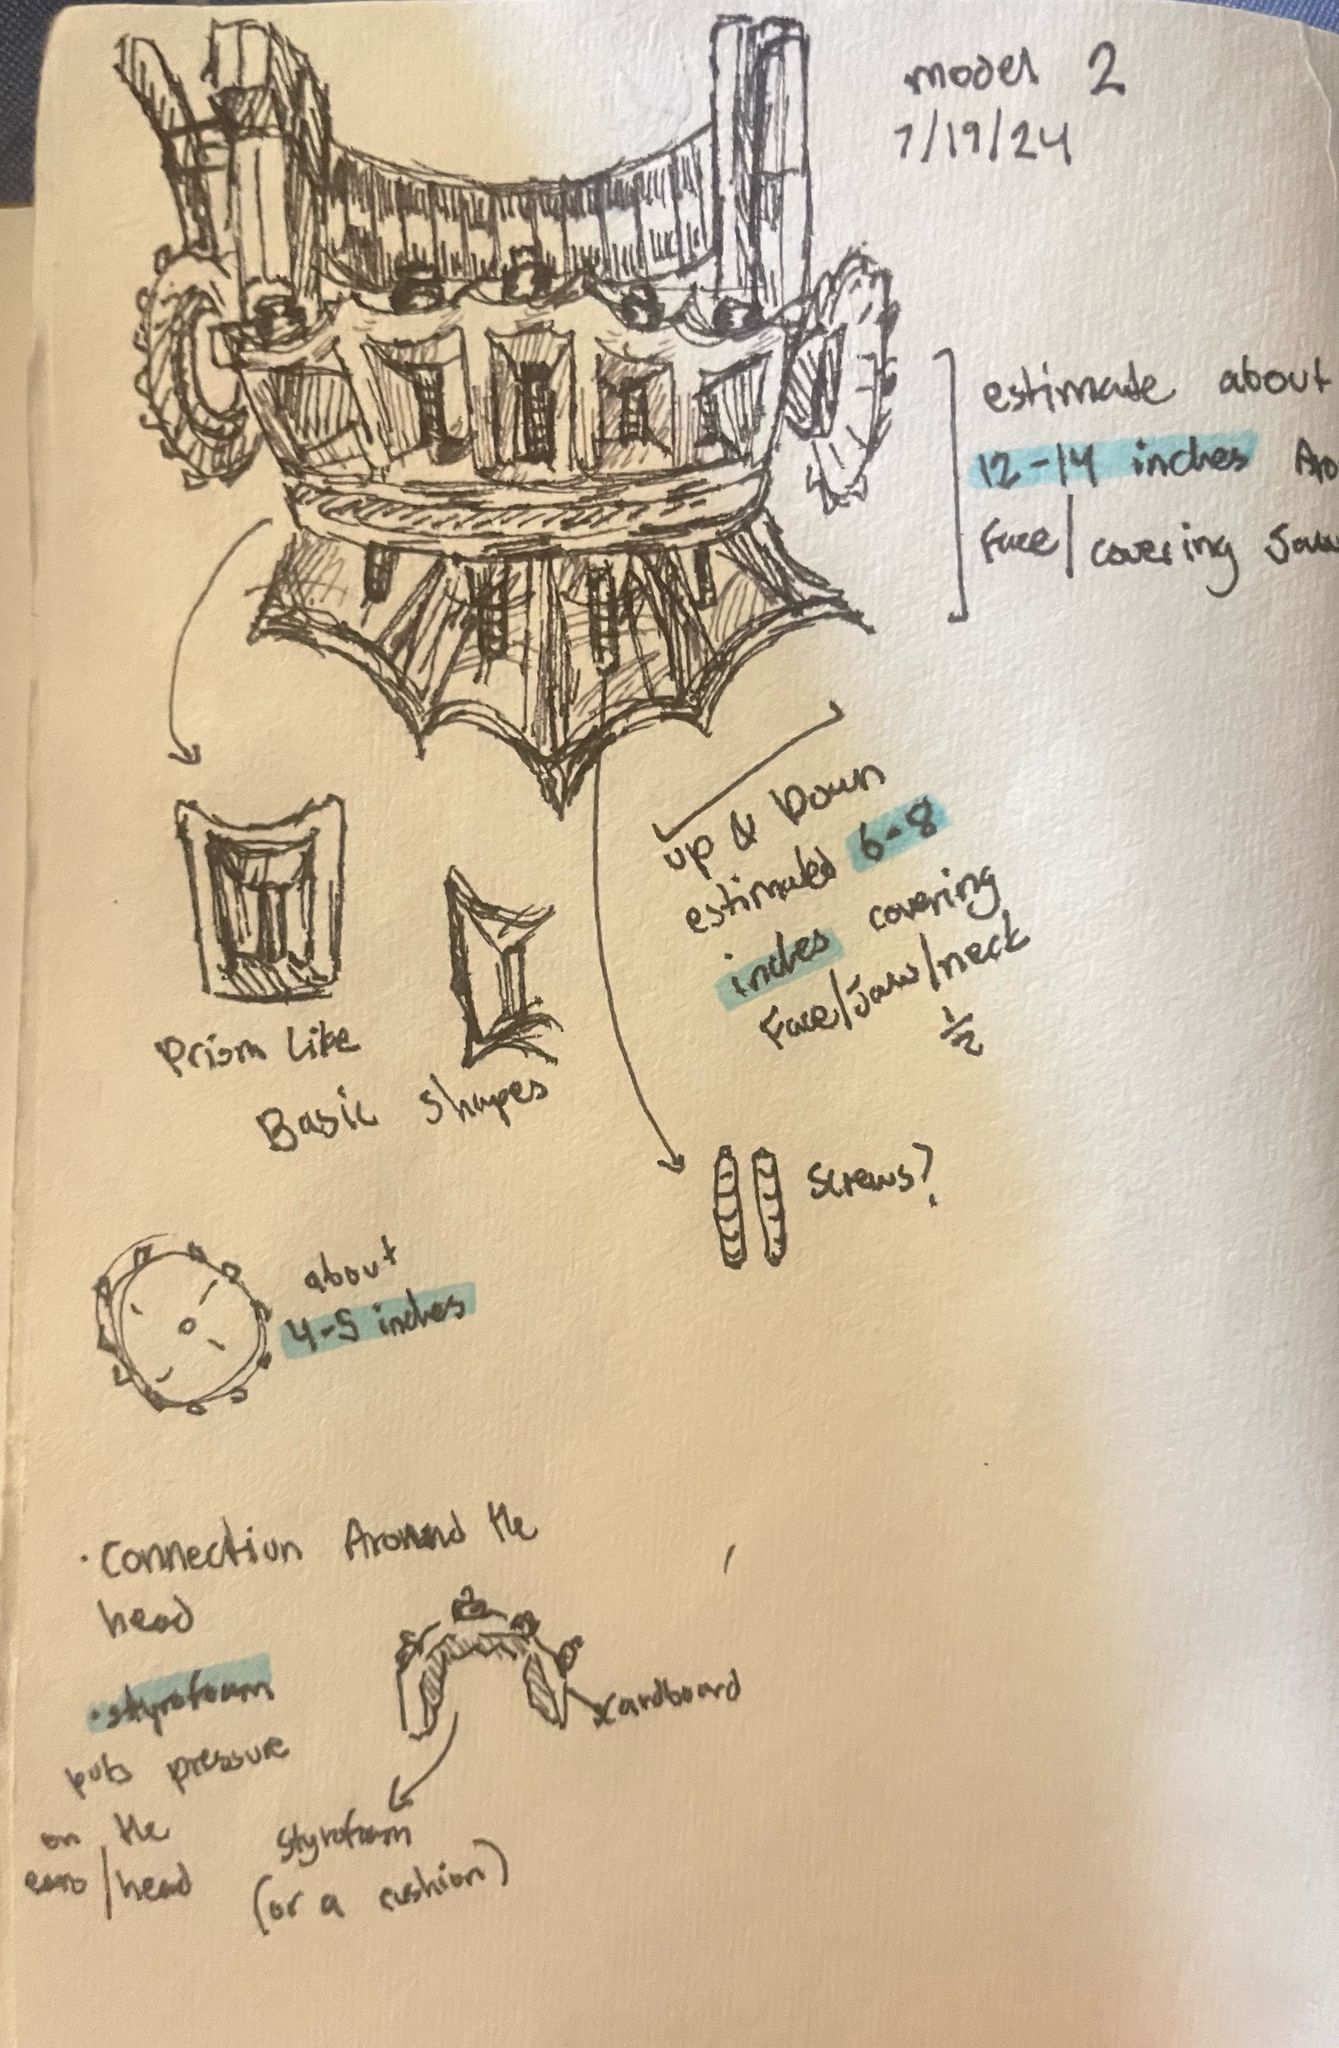 model 2
7/19/24
estimate about
12-14 inches Aro
Face/covering Jaw
up & Down
estimated 6-8
inches covering
Face/Jaw/neck
1/2
Prism Like
Basic shapes
Screws?
about
4-5 inches
· Connection Around the
head
· styrofoam
puts pressure
on the
ears/head
cardboard
styrofoam
(or a cushion)